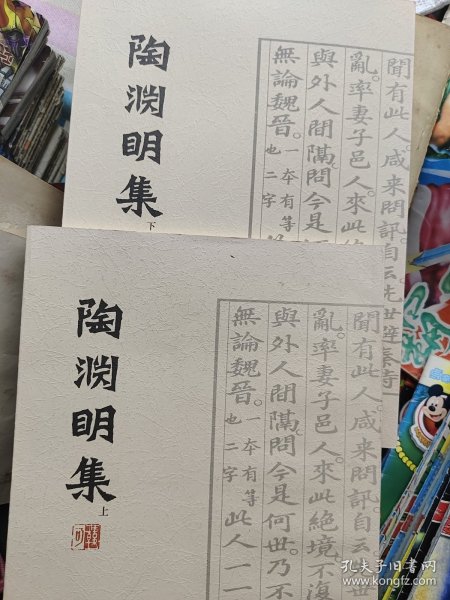 陶渊明集
下
聞有此人咸来問訊自云先世避秦時
亂率妻子邑人來此絶
與外人間隔問今是
無論魏晉一夲有等
也二字
陶渊明集
上
聞有此人咸来問訊自云
亂率妻子邑人來此絶境不復
與外人間隔問今是何世乃不
無論魏晉一夲有等此人一一
也二字
孔夫子旧书网
www.kongfz.com